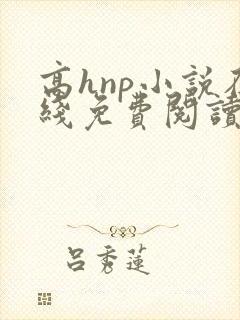 高hnp小說在
綫免費閱讀
呂秀蓮